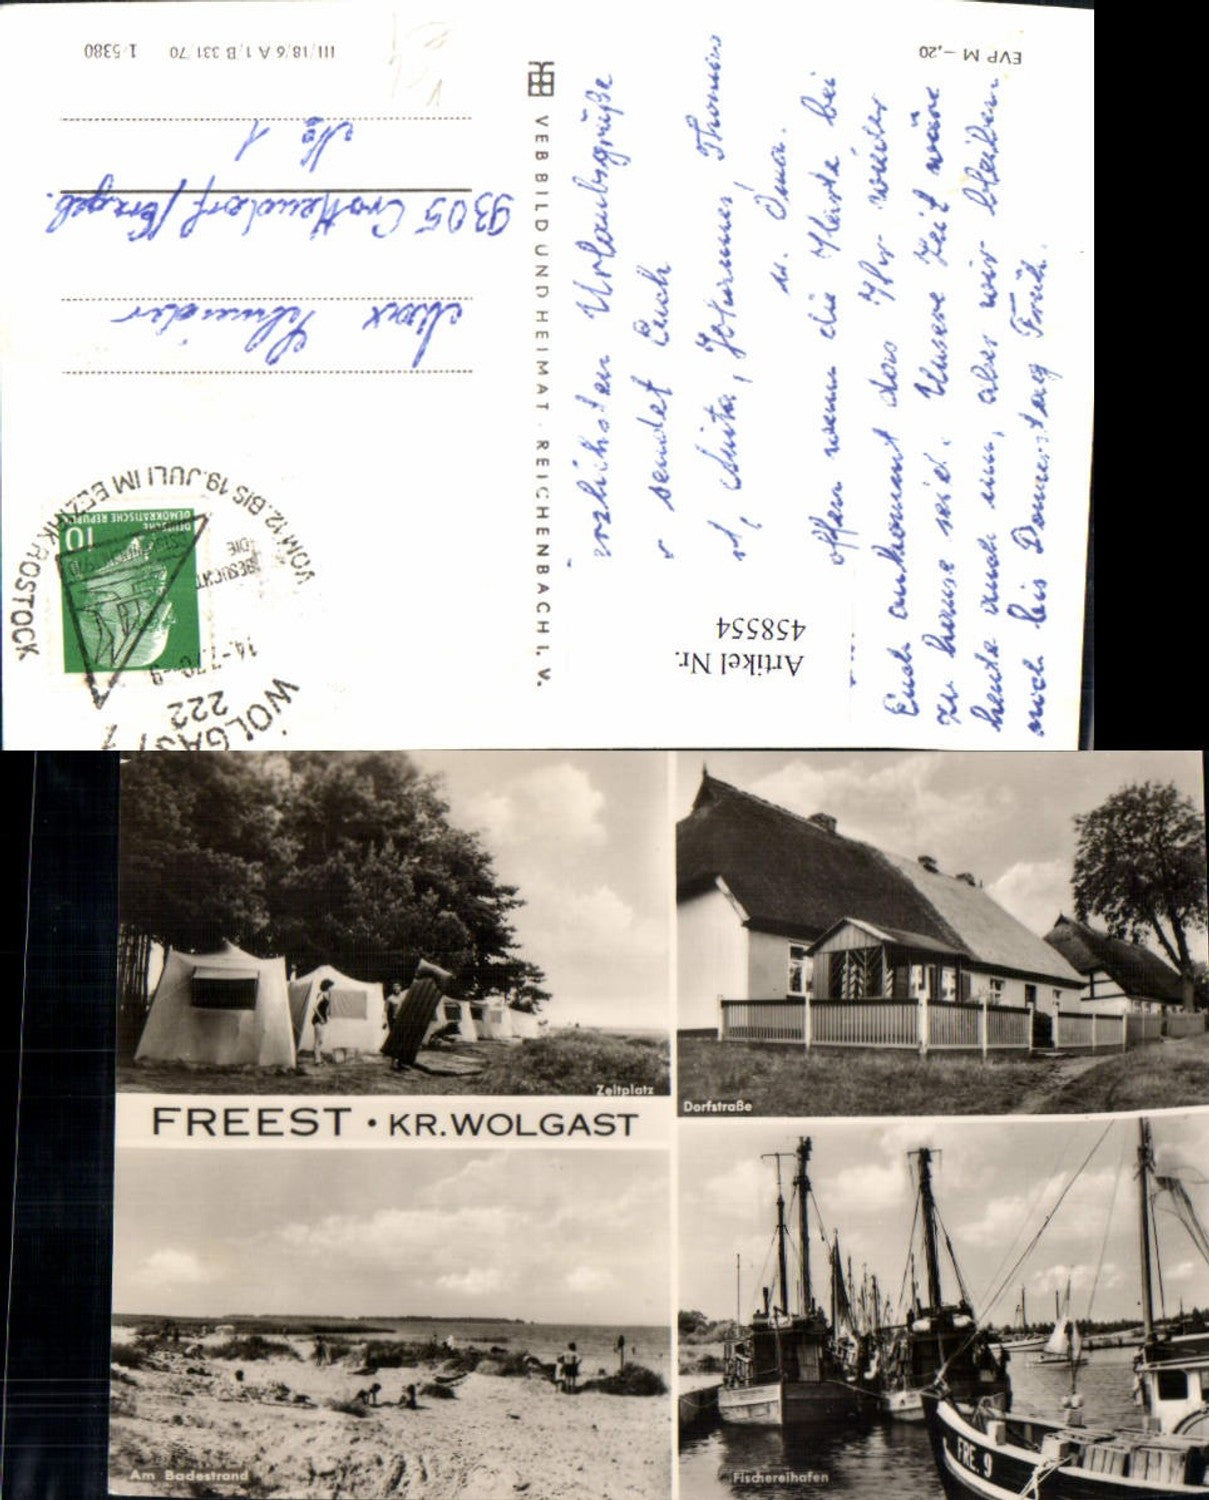 EVP M –,20
III/18/6 A 1/B 331/70 1/5380
VEB BILD UND HEIMAT · REICHENBACH I. V.
Urlaubsgrüße
sendet Euch
Anita, Johannes, Thomas
u. Oma.
offen wenn die Karte bei
Euch ankommt das Ihr wieder
zu hause seid. Unsere Zeit wäre
heute auch um, aber wir bleiben
noch bis Donnerstag Früh.
Max Schneider
9305 Crottendorf /Erzgeb.
No 1
DEUTSCHE
DEMOKRATISCHE REPUBLIK
10
VOM 12. BIS 19. JULI IM BEZIRK ROSTOCK
BESUCHT
DIE
14.-7.70-9
222
WOLGAST 1
Artikel Nr.
458554
Zeltplatz
Dorfstraße
FREEST · KR. WOLGAST
Am Badestrand
Fischereihafen
FRE. 9